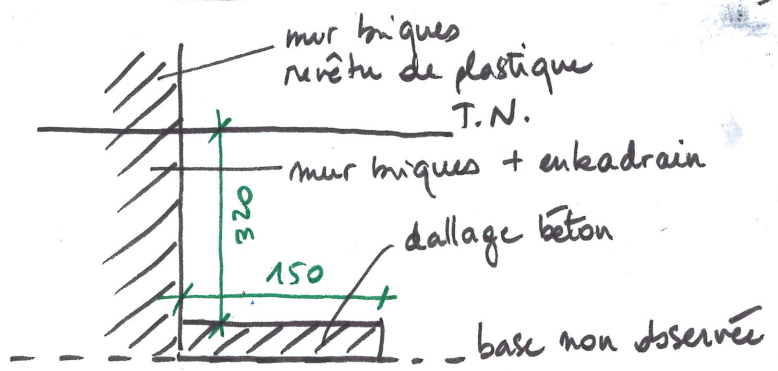 mur briques
revêtu de plastique
T.N.
mur briques + enkadrain
320
dallage béton
150
base non observée